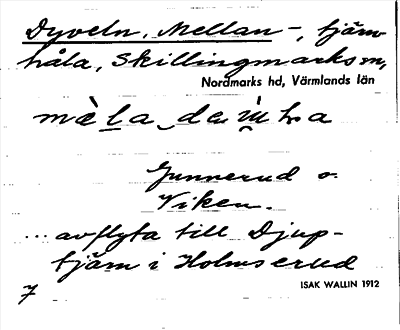 Dyveln, Mellan -, tjärn
håla, Skillingmarks sn,
Nordmarks hd, Värmlands län
Gunnerud o.
Viken.
... avflyta till Djup-
tjärn i Holmserud
ISAK WALLIN 1912
7